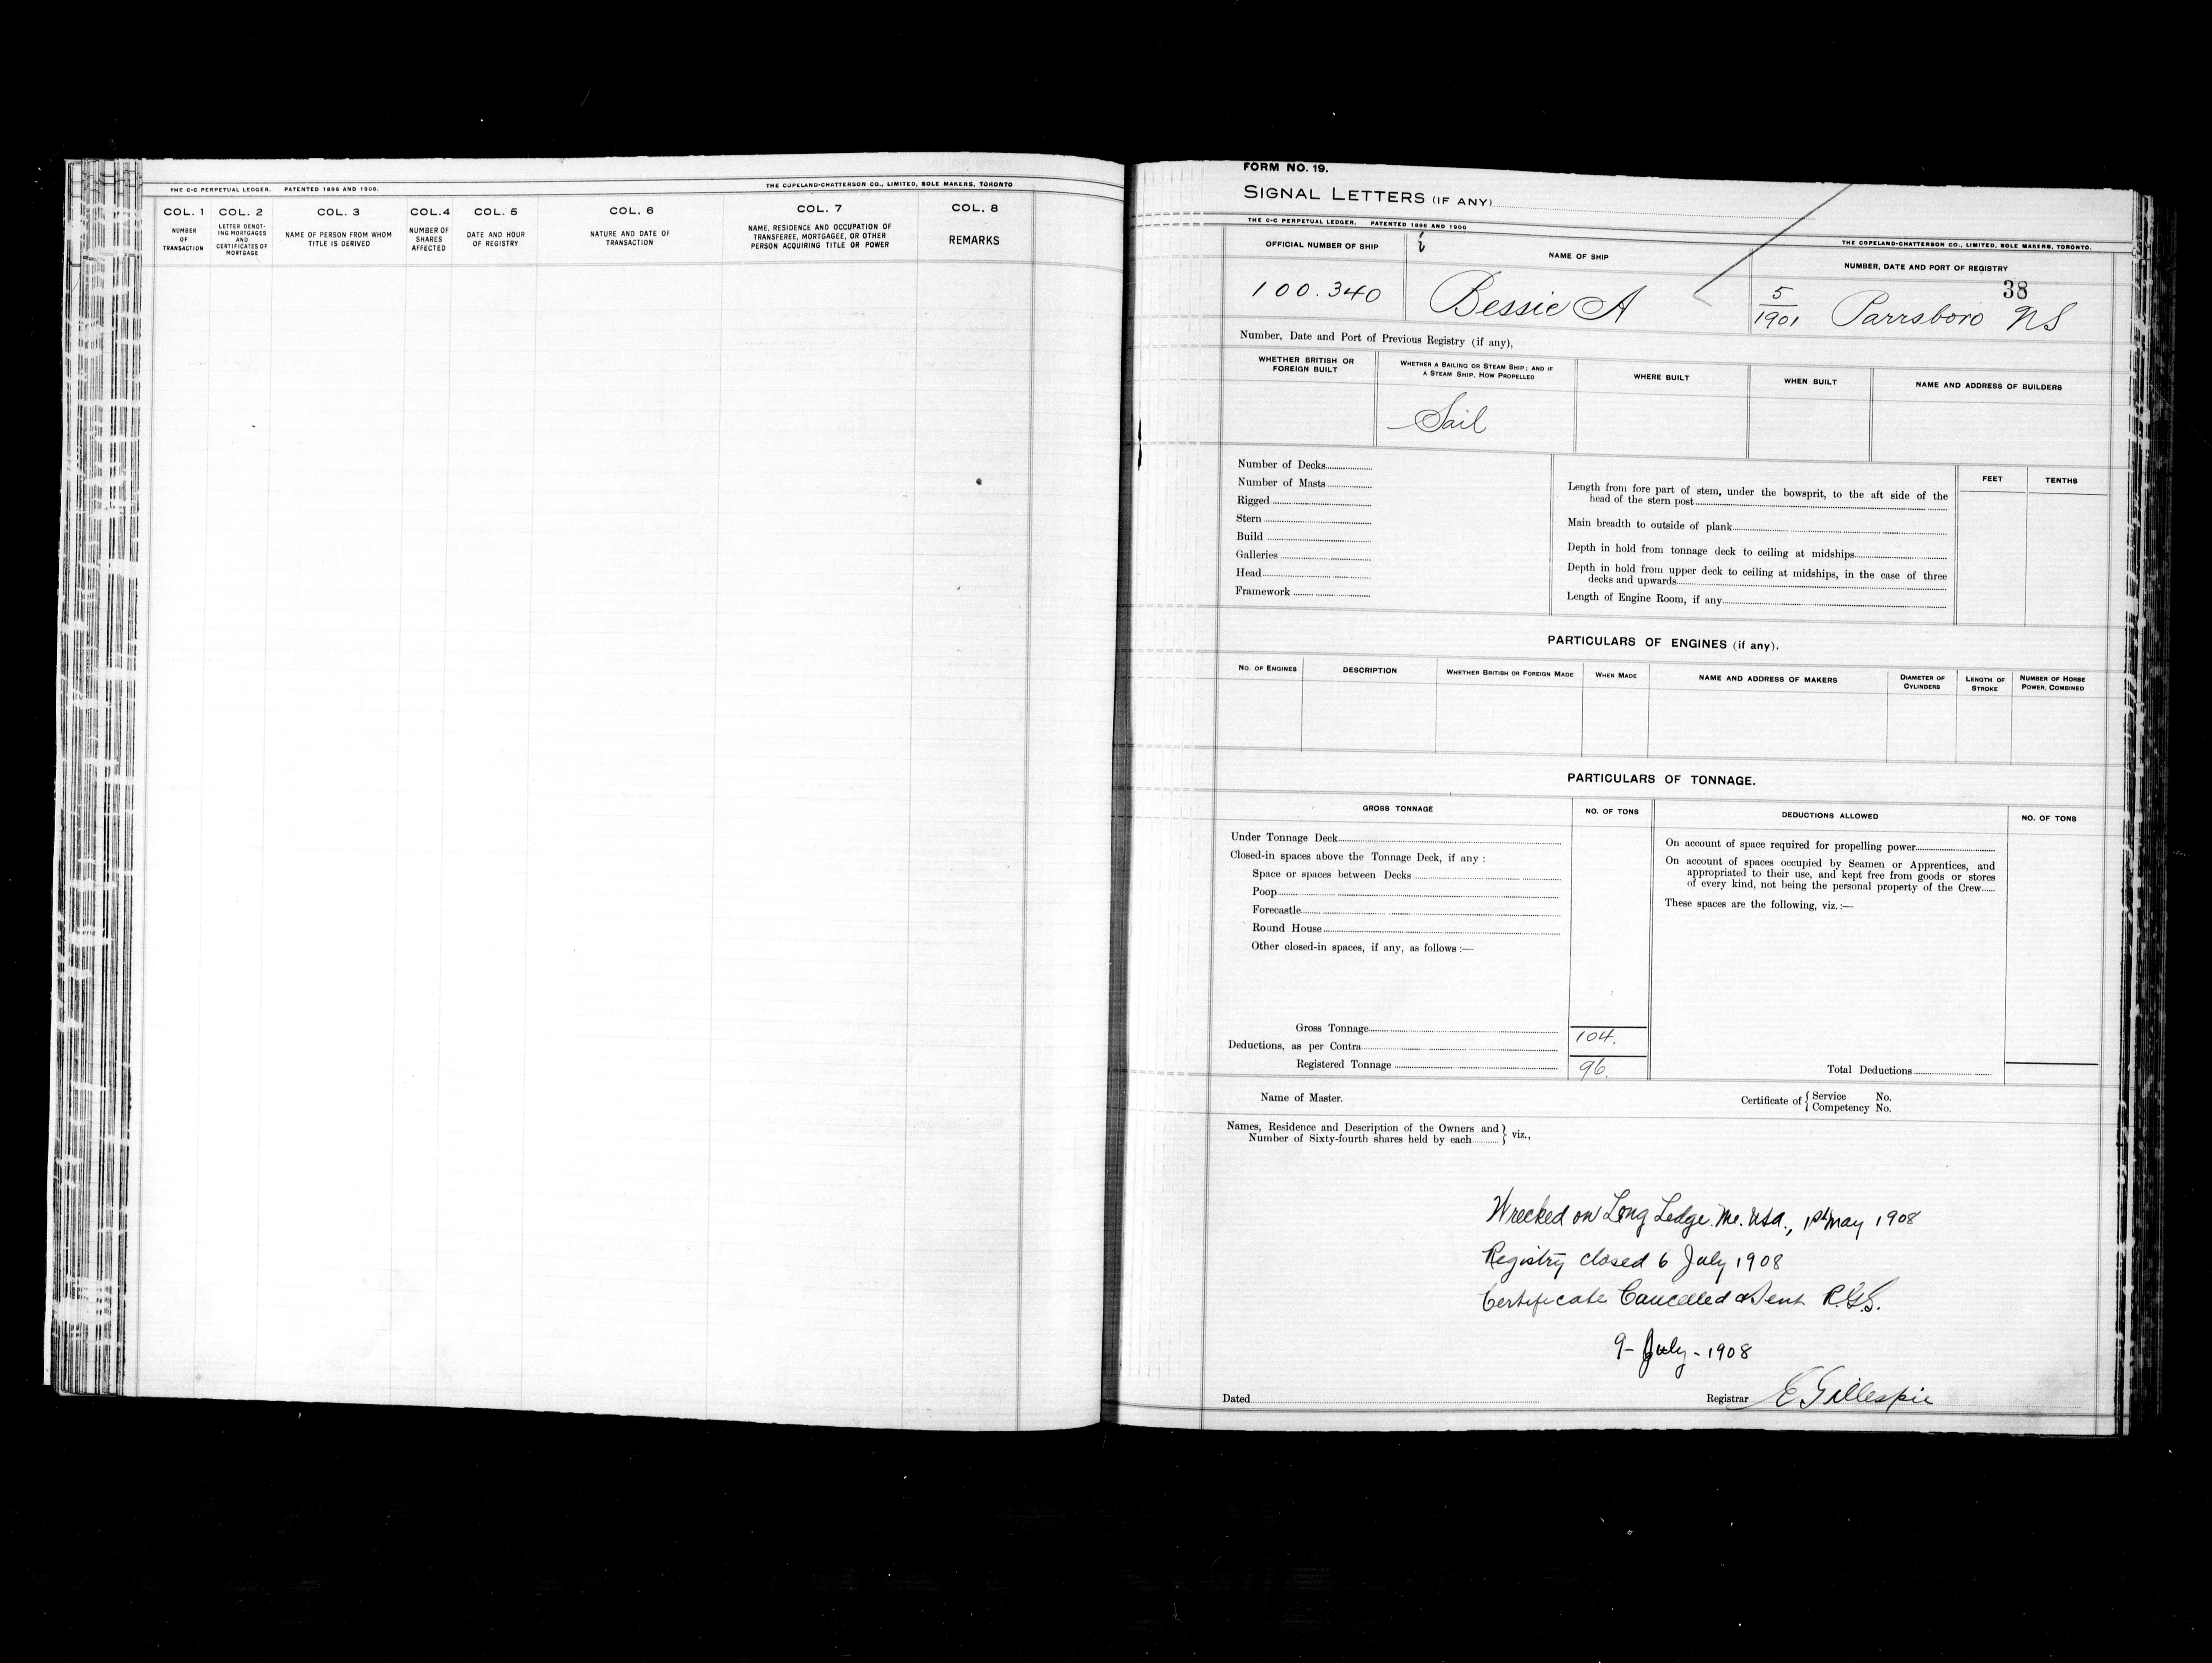 THE C-C PERPETUAL LEDGER. PATENTED 1896 AND 1900.
THE COPELAND-CHATTERSON CO., LIMITED, SOLE MAKERS, TORONTO
COL. 1 COL. 2 COL. 3 COL. 4 COL. 5 COL. 6 COL. 7 COL. 8
NUMBER OF TRANSACTION
LETTER DENOTING MORTGAGES AND CERTIFICATES OF MORTGAGE
NAME OF PERSON FROM WHOM TITLE IS DERIVED
NUMBER OF SHARES AFFECTED
DATE AND HOUR OF REGISTRY
NATURE AND DATE OF TRANSACTION
NAME, RESIDENCE AND OCCUPATION OF TRANSFEREE, MORTGAGEE, OR OTHER PERSON ACQUIRING TITLE OR POWER
REMARKS
FORM NO. 19.
SIGNAL LETTERS (IF ANY)
THE C-C PERPETUAL LEDGER. PATENTED 1896 AND 1900
THE COPELAND-CHATTERSON CO., LIMITED, SOLE MAKERS, TORONTO.
OFFICIAL NUMBER OF SHIP
NAME OF SHIP
NUMBER, DATE AND PORT OF REGISTRY
38
100.340
Bessie A
5/1901 Parrsboro NS
Number, Date and Port of Previous Registry (if any),
WHETHER BRITISH OR FOREIGN BUILT
WHETHER A SAILING OR STEAM SHIP; AND IF A STEAM SHIP, HOW PROPELLED
WHERE BUILT
WHEN BUILT
NAME AND ADDRESS OF BUILDERS
Sail
Number of Decks
Number of Masts
Rigged
Stern
Build
Galleries
Head
Framework
FEET TENTHS
Length from fore part of stem, under the bowsprit, to the aft side of the
head of the stern post
Main breadth to outside of plank
Depth in hold from tonnage deck to ceiling at midships
Depth in hold from upper deck to ceiling at midships, in the case of three
decks and upwards
Length of Engine Room, if any
PARTICULARS OF ENGINES (if any).
NO. OF ENGINES
DESCRIPTION
WHETHER BRITISH OR FOREIGN MADE
WHEN MADE
NAME AND ADDRESS OF MAKERS
DIAMETER OF CYLINDERS
LENGTH OF STROKE
NUMBER OF HORSE POWER, COMBINED
PARTICULARS OF TONNAGE.
GROSS TONNAGE
NO. OF TONS
DEDUCTIONS ALLOWED
NO. OF TONS
Under Tonnage Deck
Closed-in spaces above the Tonnage Deck, if any :
Space or spaces between Decks
Poop
Forecastle
Round House
Other closed-in spaces, if any, as follows :—
Gross Tonnage 104.
Deductions, as per Contra
Registered Tonnage 96.
On account of space required for propelling power
On account of spaces occupied by Seamen or Apprentices, and
appropriated to their use, and kept free from goods or stores
of every kind, not being the personal property of the Crew
These spaces are the following, viz.:—
Total Deductions
Name of Master.
Certificate of { Service No.
Competency No.
Names, Residence and Description of the Owners and
Number of Sixty-fourth shares held by each } viz.,
Wrecked on Long Ledge. Me. USA., 1st May 1908
Registry closed 6 July 1908
Certificate Cancelled & Sent R.G.S.
9 - July - 1908
Dated
Registrar E Gillespie